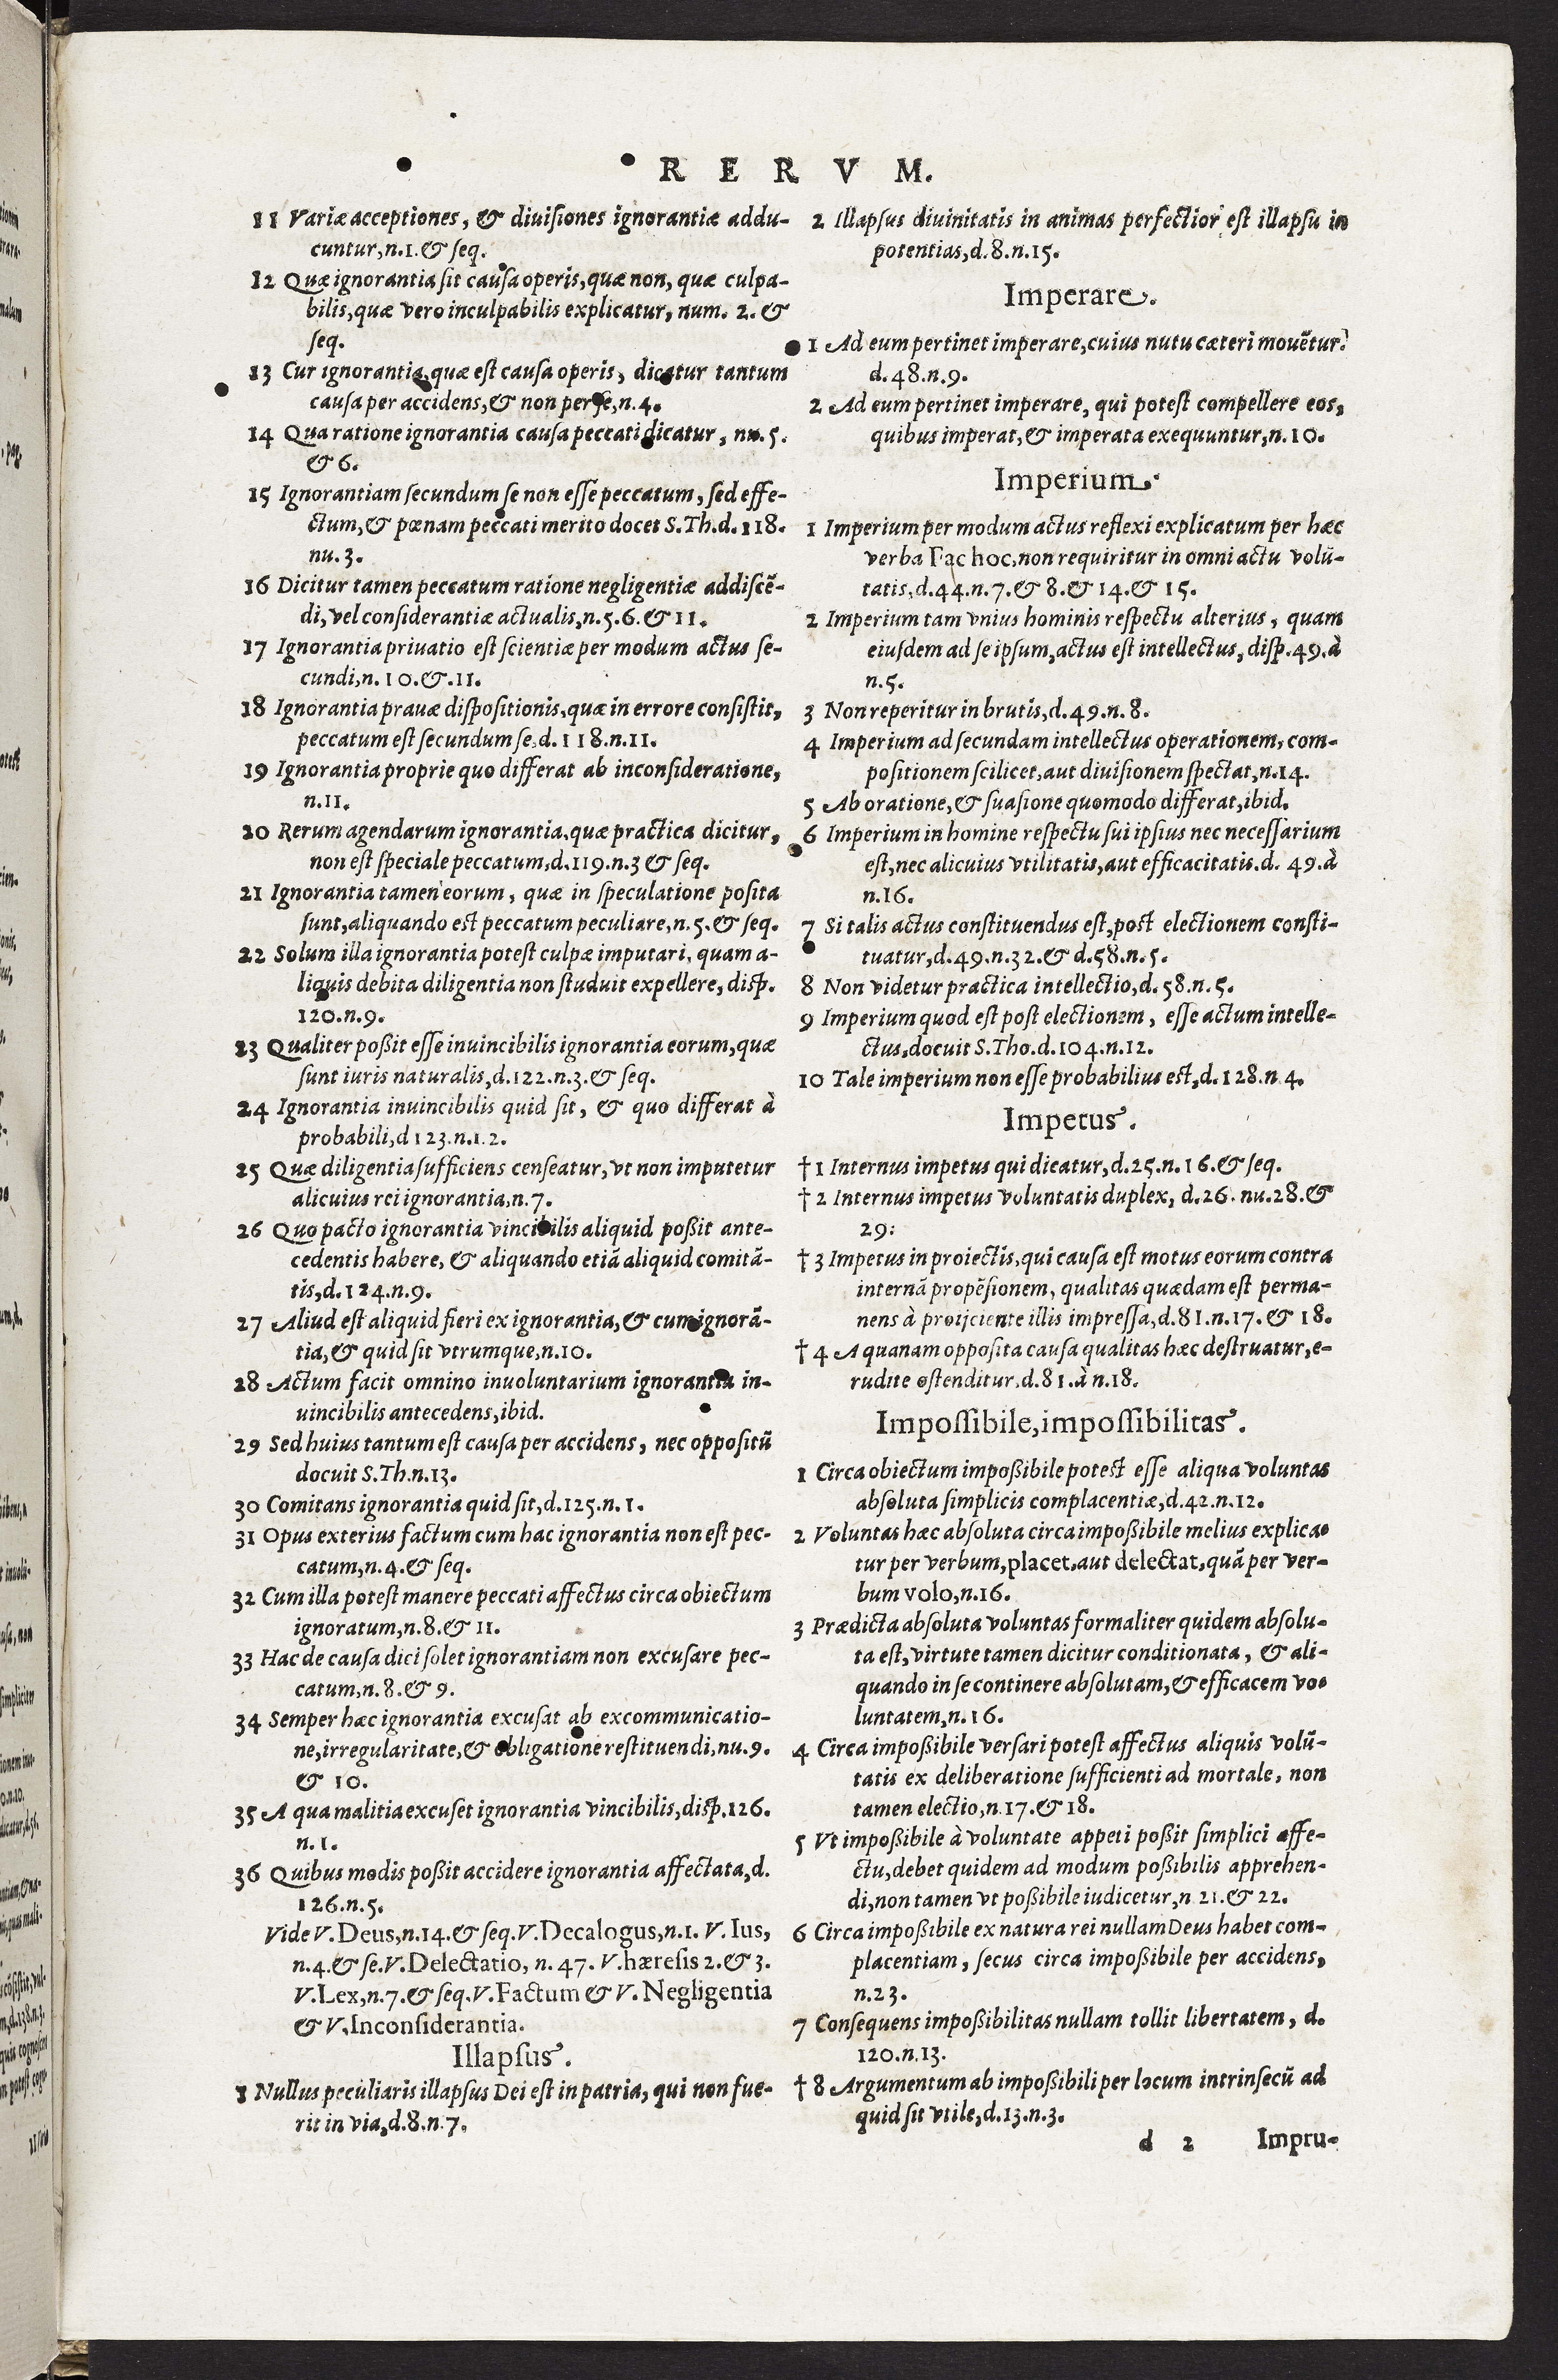 R E R V M.
11 Variæ acceptiones, & diuisiones ignorantiæ addu-
cuntur, n.1. & seq.
12 Quæ ignorantia sit causa operis, quæ non, quæ culpa-
bilis, quæ vero inculpabilis explicatur, num. 2. &
seq.
13 Cur ignorantia, quæ est causa operis, dicatur tantum
causa per accidens, & non per se, n.4.
14 Qua ratione ignorantia causa peccati dicatur, nu.5.
& 6.
15 Ignorantiam secundum se non esse peccatum, sed effe-
ctum, & pœnam peccati merito docet S.Th.d.118.
nu.3.
16 Dicitur tamen peccatum ratione negligentiæ addiscē-
di, vel considerantiæ actualis, n.5.6. & 11.
17 Ignorantia priuatio est scientiæ per modum actus se-
cundi, n.10.&.11.
18 Ignorantia prauæ dispositionis, quæ in errore consistit,
peccatum est secundum se, d.118.n.11.
19 Ignorantia proprie quo differat ab inconsideratione,
n.11.
20 Rerum agendarum ignorantia, quæ practica dicitur,
non est speciale peccatum, d.119.n.3 & seq.
21 Ignorantia tamen eorum, quæ in speculatione posita
sunt, aliquando est peccatum peculiare, n.5. & seq.
22 Solum illa ignorantia potest culpæ imputari, quam a-
liquis debita diligentia non studuit expellere, disp.
120.n.9.
23 Qualiter possit esse inuincibilis ignorantia eorum, quæ
sunt iuris naturalis, d.122.n.3. & seq.
24 Ignorantia inuincibilis quid sit, & quo differat à
probabili, d 123.n.1.2.
25 Quæ diligentia sufficiens censeatur, vt non imputetur
alicuius rei ignorantia, n.7.
26 Quo pacto ignorantia vincibilis aliquid possit ante-
cedentis habere, & aliquando etiā aliquid comitā-
tis, d.124.n.9.
27 Aliud est aliquid fieri ex ignorantia, & cum ignorā-
tia, & quid sit vtrumque, n.10.
28 Actum facit omnino inuoluntarium ignorantia in-
uincibilis antecedens, ibid.
29 Sed huius tantum est causa per accidens, nec oppositū
docuit S.Th.n.13.
30 Comitans ignorantia quid sit, d.125.n.1.
31 Opus exterius factum cum hac ignorantia non est pec-
catum, n.4. & seq.
32 Cum illa potest manere peccati affectus circa obiectum
ignoratum, n.8. & 11.
33 Hac de causa dici solet ignorantiam non excusare pec-
catum, n.8. & 9.
34 Semper hæc ignorantia excusat ab excommunicatio-
ne, irregularitate, & obligatione restituendi, nu.9.
& 10.
35 A qua malitia excuset ignorantia vincibilis, disp.126.
n.1.
36 Quibus modis possit accidere ignorantia affectata, d.
126.n.5.
Vide V. Deus, n.14. & seq. V. Decalogus, n.1. V. Ius,
n.4. & se. V. Delectatio, n. 47. V. hæresis 2. & 3.
V. Lex, n.7. & seq. V. Factum & V. Negligentia
& V. Inconsiderantia.
Illapsus.
1 Nullus peculiaris illapsus Dei est in patria, qui non fue-
rit in via, d.8.n.7.
2 Illapsus diuinitatis in animas perfectior est illapsu in
potentias, d.8.n.15.
Imperare.
1 Ad eum pertinet imperare, cuius nutu cæteri mouētur.
d.48.n.9.
2 Ad eum pertinet imperare, qui potest compellere eos,
quibus imperat, & imperata exequuntur, n.10.
Imperium.
1 Imperium per modum actus reflexi explicatum per hæc
verba Fac hoc, non requiritur in omni actu volū-
tatis, d.44.n.7. & 8. & 14. & 15.
2 Imperium tam vnius hominis respectu alterius, quam
eiusdem ad se ipsum, actus est intellectus, disp.49.à
n.5.
3 Non reperitur in brutis, d.49.n.8.
4 Imperium ad secundam intellectus operationem, com-
positionem scilicet, aut diuisionem spectat, n.14.
5 Ab oratione, & suasione quomodo differat, ibid.
6 Imperium in homine respectu sui ipsius nec necessarium
est, nec alicuius vtilitatis, aut efficacitatis. d. 49.à
n.16.
7 Si talis actus constituendus est, post electionem consti-
tuatur, d.49.n.32. & d.58.n.5.
8 Non videtur practica intellectio, d.58.n.5.
9 Imperium quod est post electionem, esse actum intelle-
ctus, docuit S.Tho.d.104.n.12.
10 Tale imperium non esse probabilius est, d.128.n 4.
Impetus.
†1 Internus impetus qui dicatur, d.25.n.16. & seq.
†2 Internus impetus voluntatis duplex, d.26. nu.28. &
29:
†3 Impetus in proiectis, qui causa est motus eorum contra
internā propēsionem, qualitas quædam est perma-
nens à proijciente illis impressa, d.81.n.17. & 18.
†4 A quanam opposita causa qualitas hæc destruatur, e-
rudite ostenditur. d.81.à n.18.
Impossibile, impossibilitas.
1 Circa obiectum impossibile potest esse aliqua voluntas
absoluta simplicis complacentiæ, d.42.n.12.
2 Voluntas hæc absoluta circa impossibile melius explica-
tur per verbum, placet, aut delectat, quā per ver-
bum volo, n.16.
3 Prædicta absoluta voluntas formaliter quidem absolu-
ta est, virtute tamen dicitur conditionata, & ali-
quando in se continere absolutam, & efficacem vo-
luntatem, n.16.
4 Circa impossibile versari potest affectus aliquis volū-
tatis ex deliberatione sufficienti ad mortale, non
tamen electio, n.17. & 18.
5 Vt impossibile à voluntate appeti possit simplici affe-
ctu, debet quidem ad modum possibilis apprehen-
di, non tamen vt possibile iudicetur, n 21. & 22.
6 Circa impossibile ex natura rei nullam Deus habet com-
placentiam, secus circa impossibile per accidens,
n.23.
7 Consequens impossibilitas nullam tollit libertatem, d.
120.n.13.
†8 Argumentum ab impossibili per locum intrinsecū ad
quid sit vtile, d.13.n.3.
d 2 Impru-